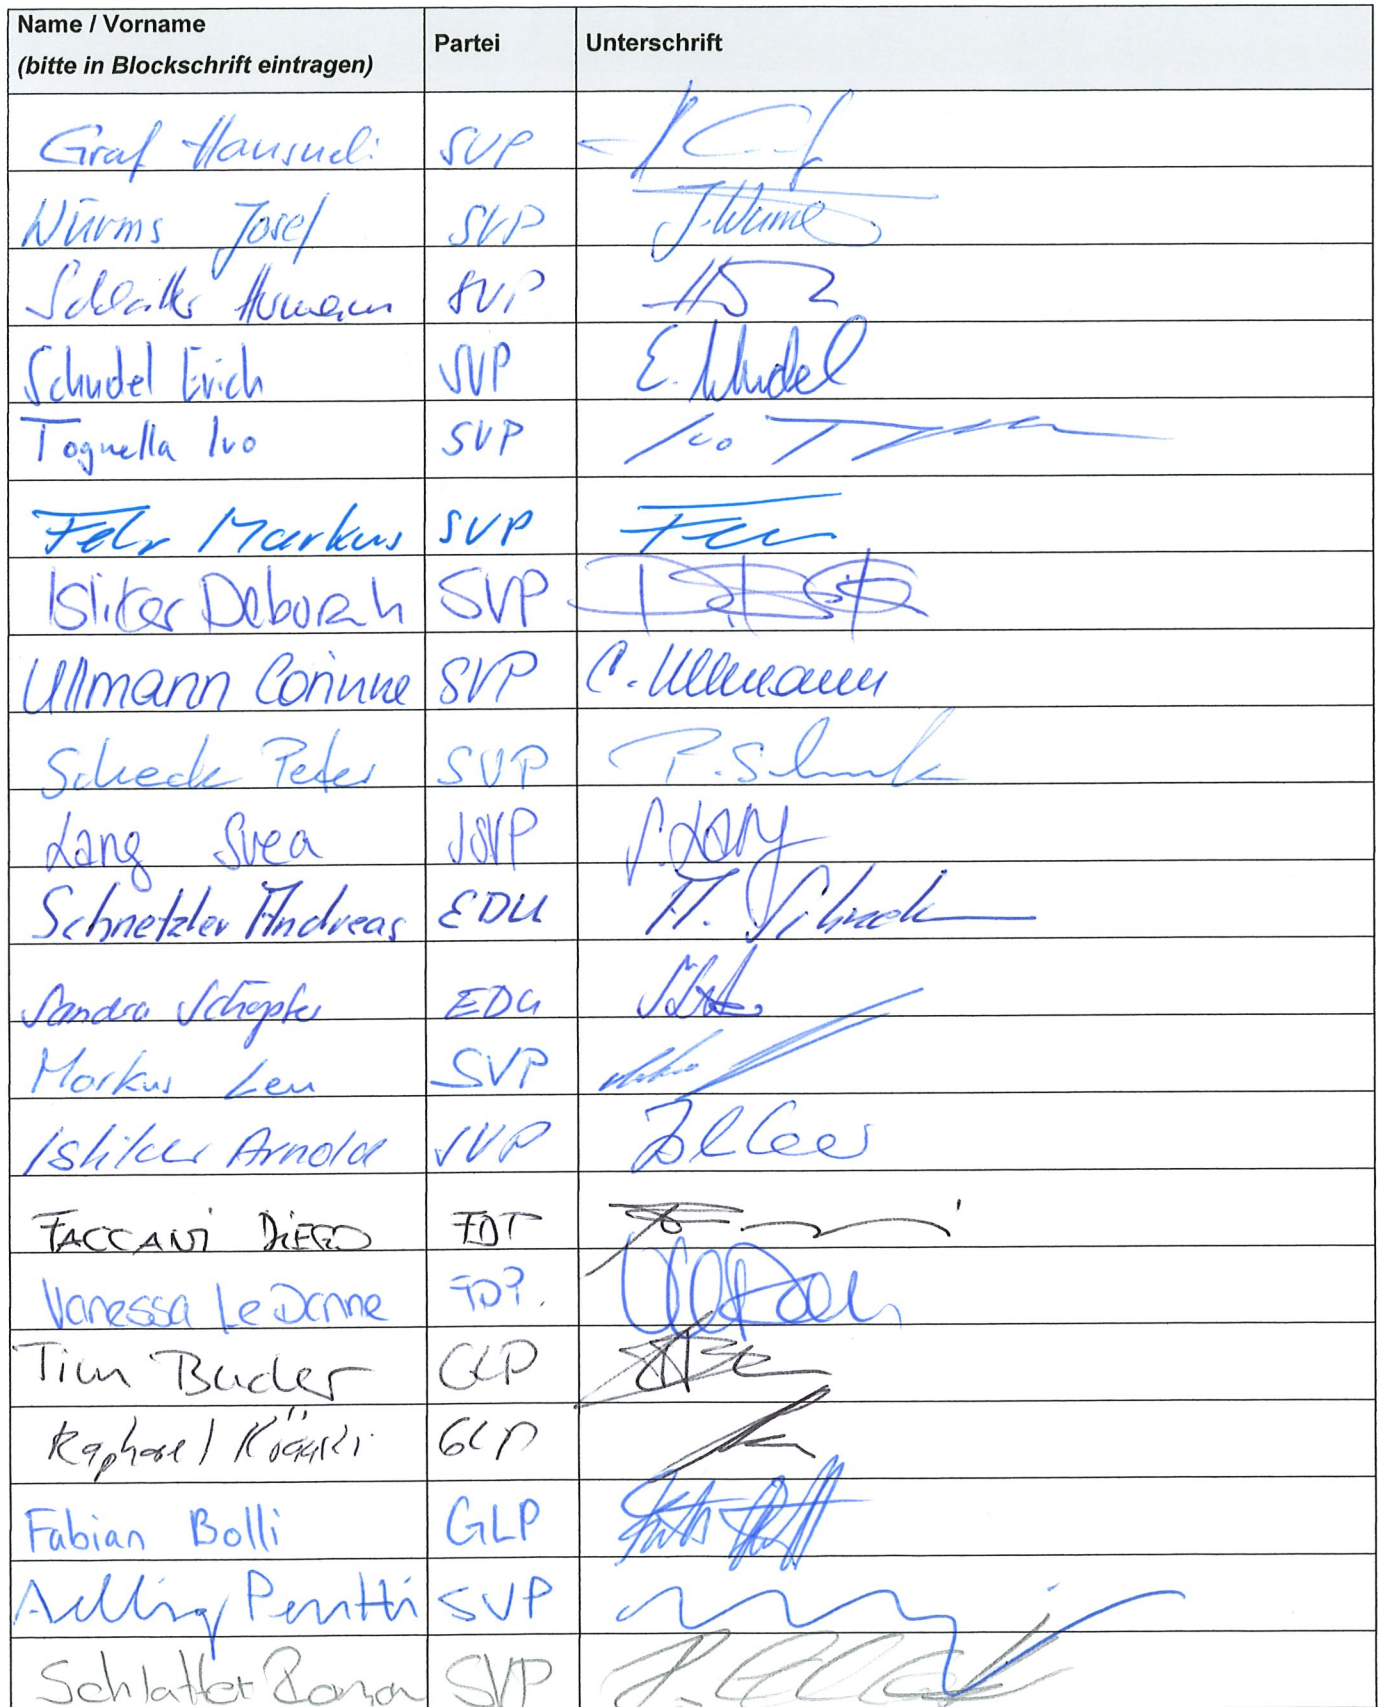 Name / Vorname Partei Unterschrift
(bitte in Blockschrift eintragen)
Graf Hansueli SVP
Würms Josef SVP J. Würms
Schlatter Hermann SVP HS
Schudel Erich SVP E. Schudel
Tognella Ivo SVP Ivo
Fehr Markus SVP
Isliker Deborah SVP
Ullmann Corinne SVP C. Ullmann
Scheck Peter SVP P. Scheck
Lang Svea JSVP S. Lang
Schnetzler Andreas EDU A.
Sandra Schöpfer EDU
Markus Leu SVP
Isliker Arnold SVP
FACCANI DIEGO FDP
Vanessa Le Donne FDP.
Tim Bucher GLP
Raphael GLP
Fabian Bolli GLP
Aellig Pentti SVP
Schlatter Roman SVP